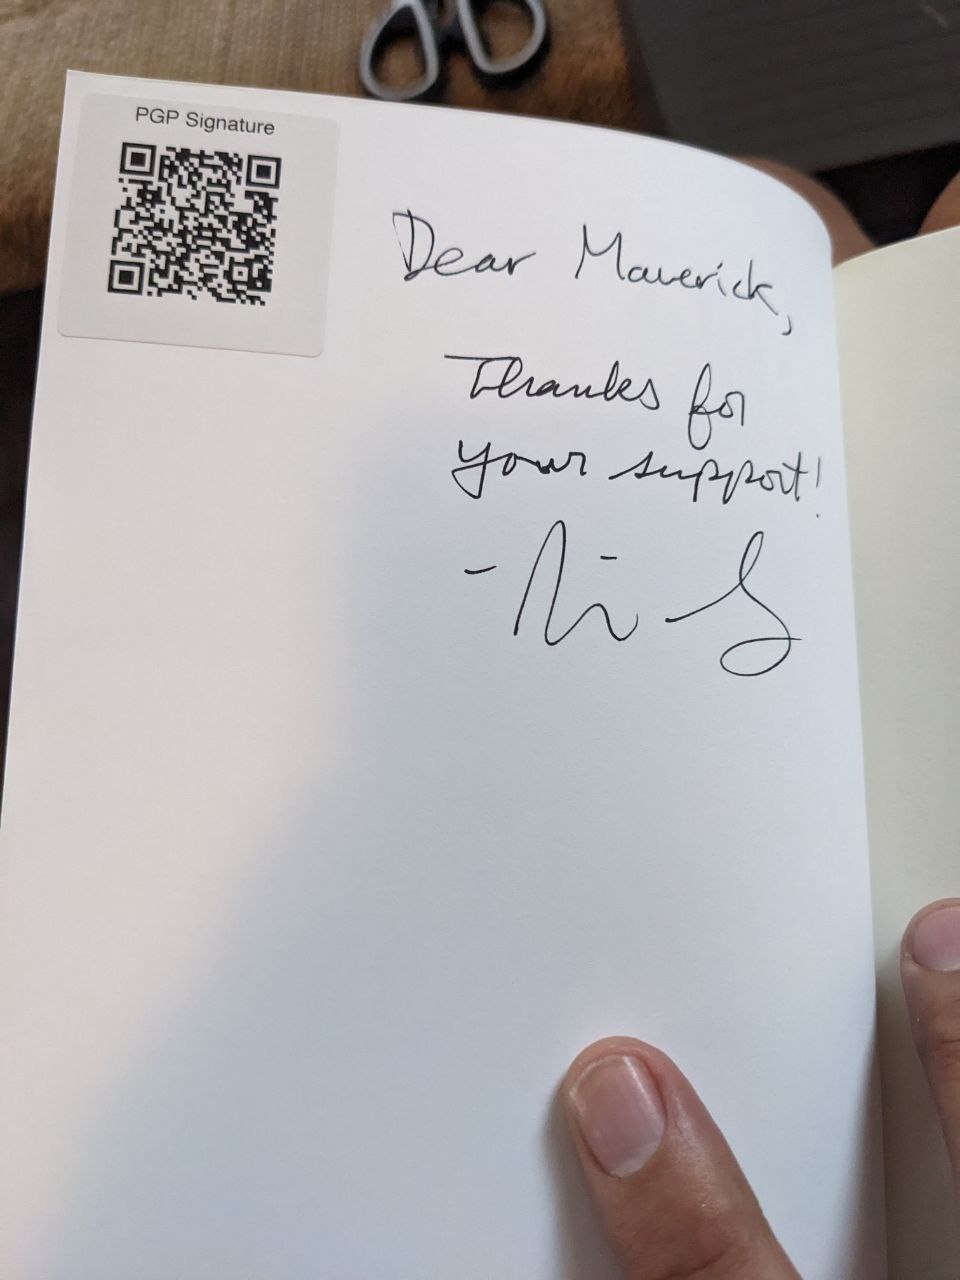 PGP Signature
Dear Maverick,
Thanks for
your support!